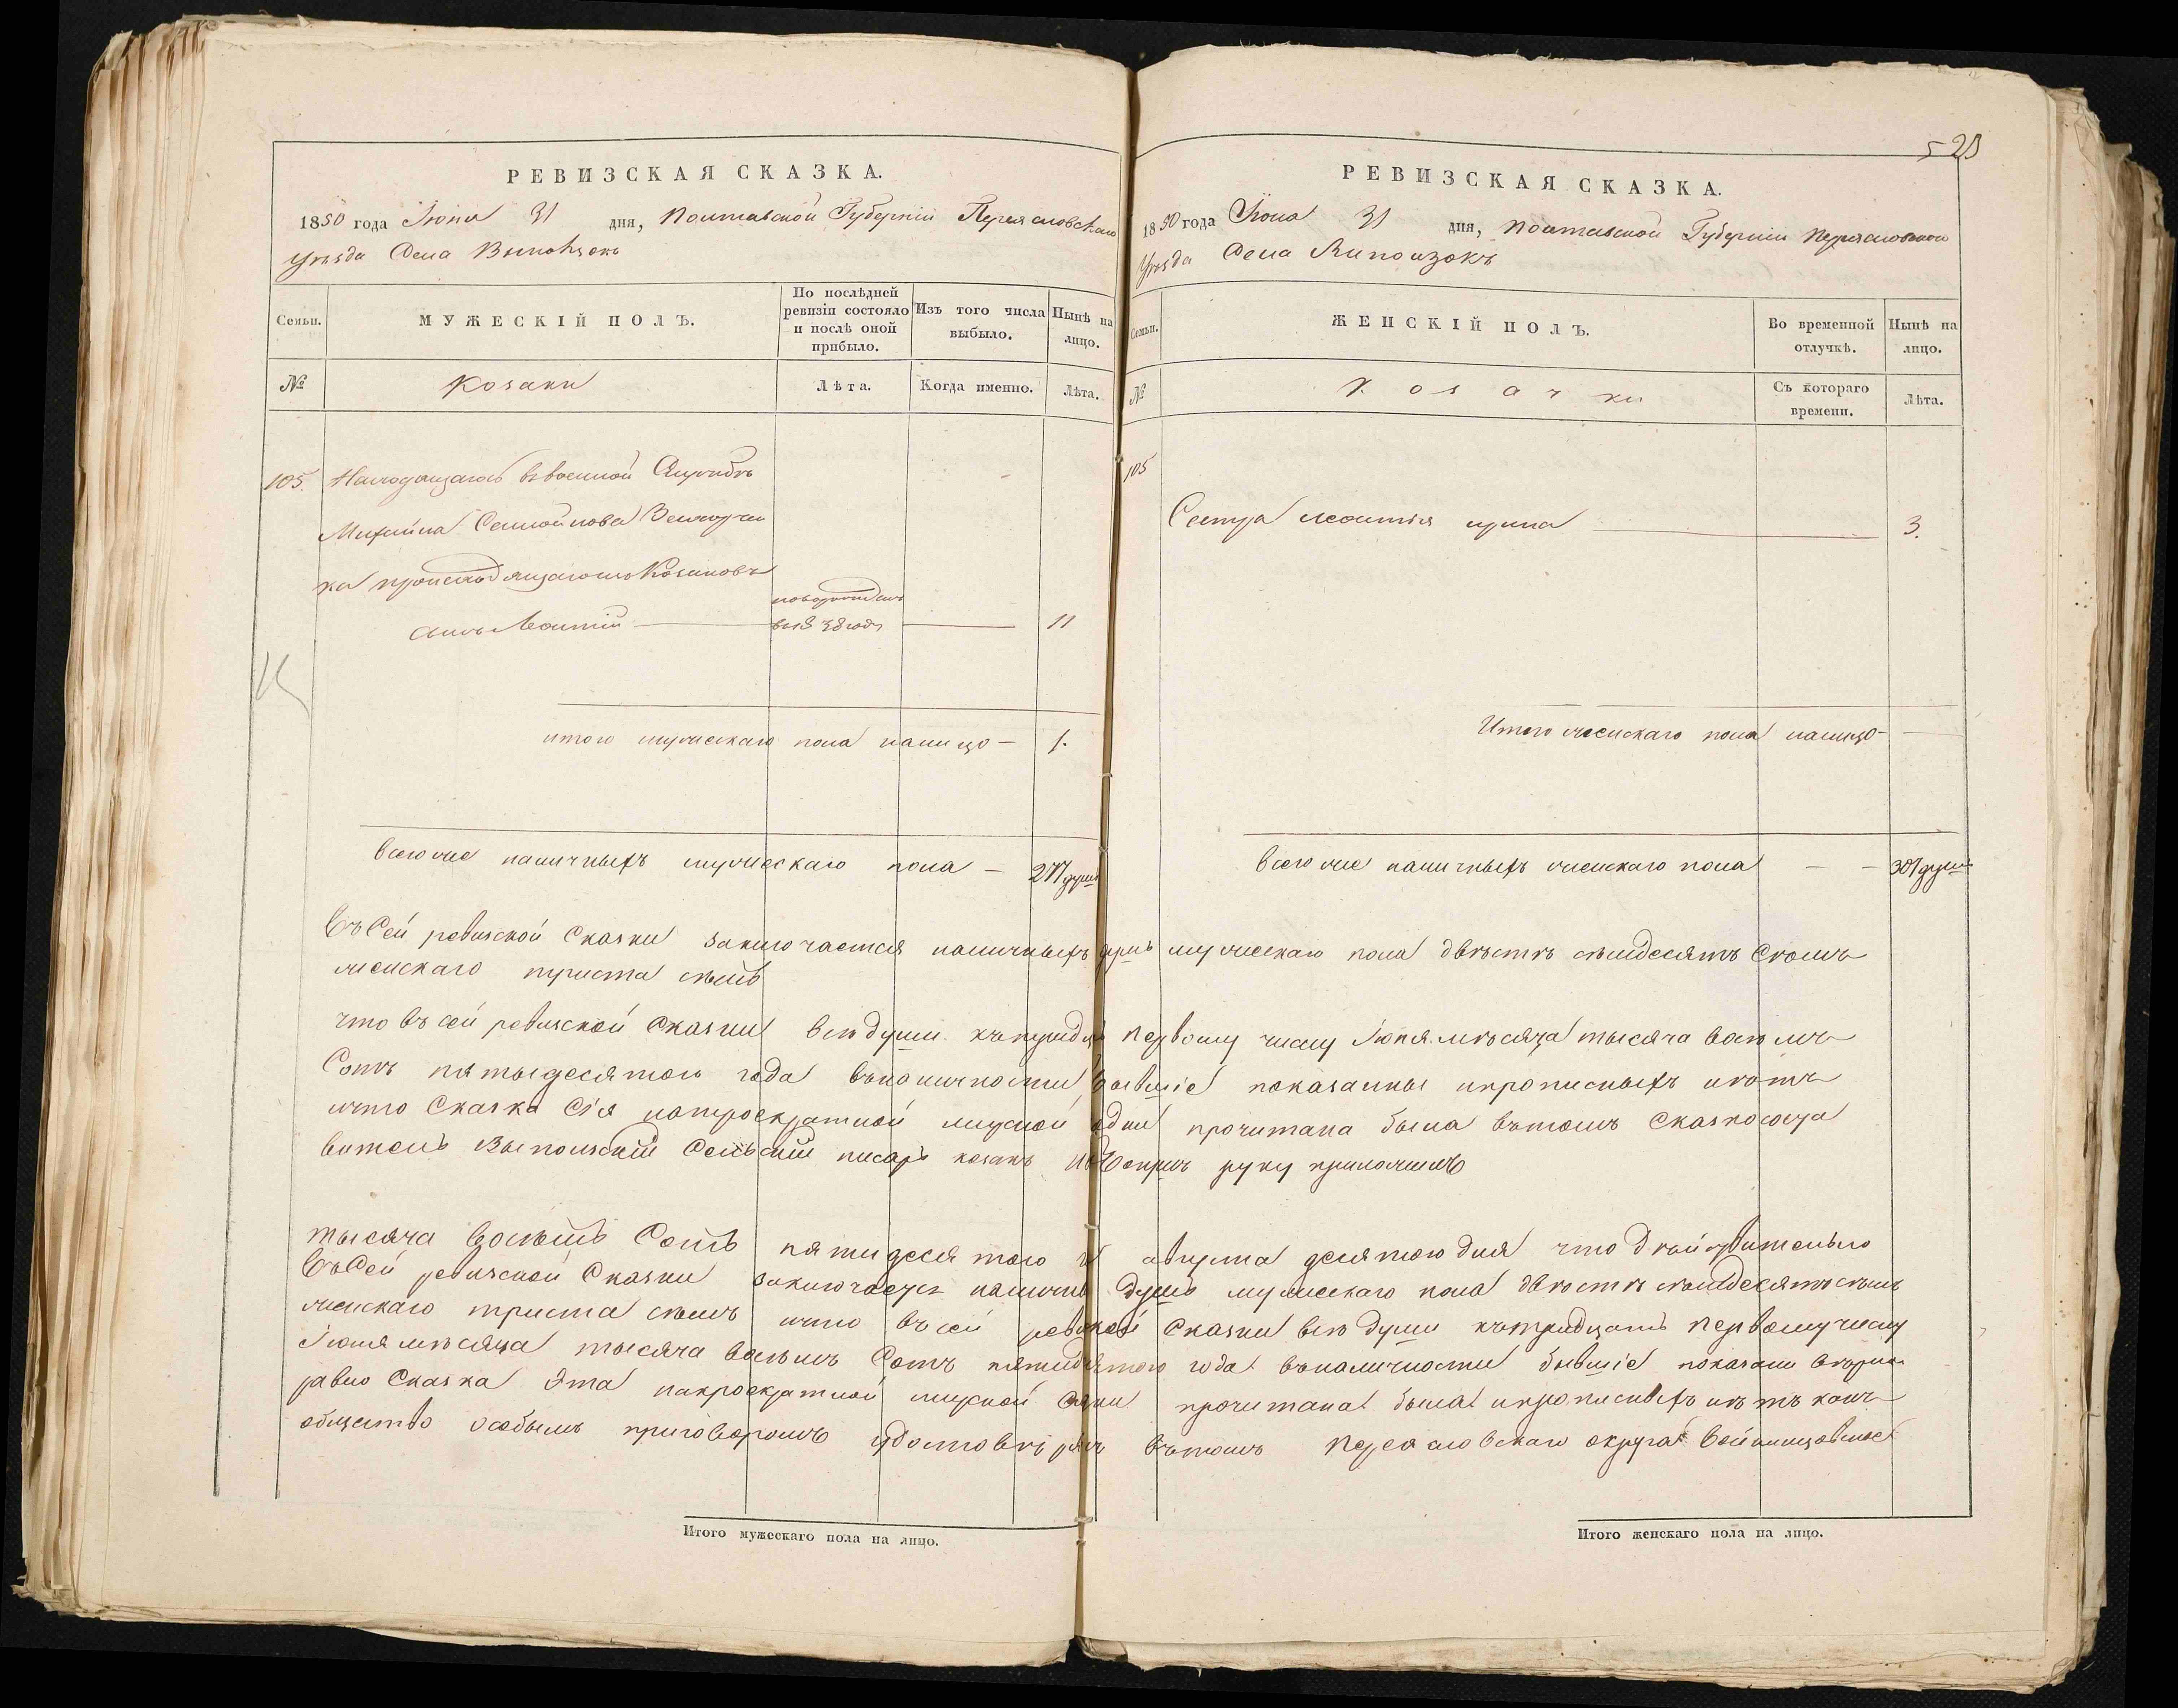 РЕВИЗСКАЯ СКАЗКА.
1850 года Іюня 31 дня, Полтавской Губерніи Переясловскаго
Уезда Села Выповзокъ
Семьи.
МУЖЕСКІЙ ПОЛЪ.
По послѣдней ревизіи состояло и послѣ оной прибыло.
Изъ того числа выбыло.
Нынѣ на лицо.
№
Козаки
Лѣта.
Когда именно.
Лѣта.
105. Находящагось въ военной Службѣ
Михайла Самойлова
ка происходящагосъ Козаковъ
новорожденъ
сынъ Леонтій въ 1838 годѣ 11
итого мужескаго пола налицо - 1.
всего же наличныхъ мужескаго пола - 277 душъ
528
РЕВИЗСКАЯ СКАЗКА.
1850 года Іюня 31 дня, Полтавской Губерніи Переясловскаго
Уезда Села Выповзокъ
Семьи.
ЖЕНСКІЙ ПОЛЪ.
Во временной отлучкѣ.
Нынѣ на лицо.
№
Козачки
Съ котораго времени.
Лѣта.
105
Сестра Леонтія Ирина 3.
Итого женскаго пола налицо -
всего же наличныхъ женскаго пола - - 307 душъ
Въ Сей ревизской Сказки заключается наличныхъ душъ мужескаго пола двѣстѣ сѣмдесятъ Сѣмъ
женскаго триста сѣмъ
что въ сей ревизской Сказки всѣ души къ тридцать Первому числу Іюня мѣсяца тысяча восѣмъ
Сотъ пятьдесятого года въ наличности бывшіе показанны и прописныхъ нѣтъ
и что Сказка Сія на троекратной мирской прочитана была въ томъ Сказкососта
витель Выползскій Сельскій писарь козакъ руку приложилъ
тысяча восѣмь Сотъ пятидесятого г августа десятого дня что дѣйствительно
въ Сей ревизской Сказки заключается налично душъ мужескаго пола двѣстѣ сѣмдесятъ сѣмъ
женскаго триста сѣмъ и что въ сей ревизской Сказки всѣ души къ тридцать Первому числу
Іюня мѣсяца тысяча восѣмъ Сотъ пятидесятого года въ наличности бывшіе показаны
равно Сказка Эта на троекратной мирской прочитана была и прописныхъ нѣтъ
общество особымъ приговоромъ удостовѣряетъ въ томъ Переясловскаго округа
Итого мужескаго пола на лицо.
Итого женскаго пола на лицо.